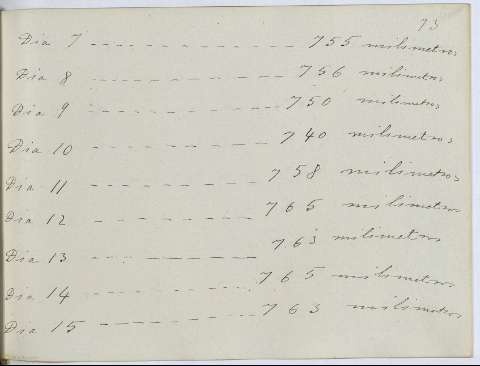 73
Dia 7 755 milimetros
Dia 8 756 milimetros
Dia 9 750 milimetros
Dia 10 740 milimetros
Dia 11 758 milimetros
Dia 12 765 milimetros
Dia 13 763 milimetros
Dia 14 765 milimetros
Dia 15 763 milimetros